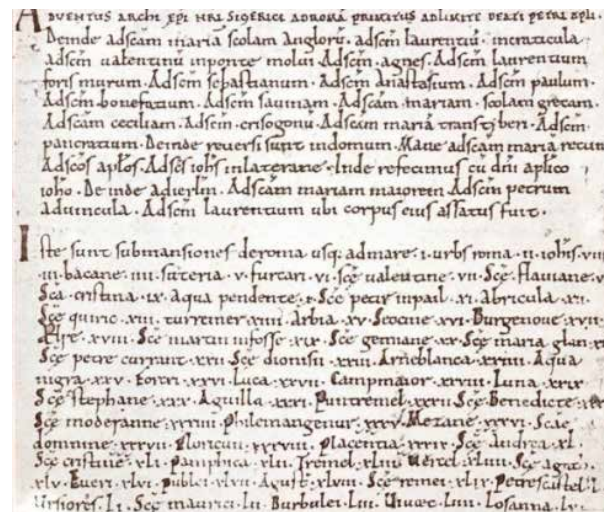 ADVENTUS ARCHI EPI NRI SIGERICI AD ROMA PRIMITUS AD LIMITE BEATI PETRI APLI.
Deinde adscam maria scolam angloru. adscm laurentiu. incraticula
adscm ualentinu inponte molui. Adscm. agnes. Adscm laurentium
foris murum. Adscm sebastianum. Adscm anastasium. Adscm paulum.
Adscm bonefatium. Adscam sauinam. Adscam. mariam. scolam grecam.
Adscam ceciliam. Adscm. crisogonu. Adscam maria transtyberi. Adscm
pancratium. Deinde reuersi sunt indomum. Mane adscam maria rotun
Adscos aplos. Adscs iohs inlaterane. Inde refecimus cu dni aplico
ioho. Deinde adierlm. Adscam mariam maiorem Adscm petrum
aduincula. Adscm laurentium ubi corpus eius assatus fuit.
Iste sunt submansiones deroma usq; admare. i. urbs roma. ii. iohis. viiii
iii. bacane. iiii. suteria. v. furcari. vi. sce ualentine. vii. Sce. flauiane. v
Sca cristina. ix. Aqua pendente. x. Sce petir inpail. xi. Abricula. xii.
Sce quiric. xiii. turreiner. xiiii. Arbia. xv. Seocine. xvi. Burgenoue. xvii.
Ælse. xviii. Sce martin infosse. xix. Sce gemiane. xx. Sce maria glan. xxi
Sce petre currant. xxii. Sce dionisii. xxiii. Arneblanca. xxiiii. Aqua
nigra. xxv. Forcri. xxvi. Luca. xxvii. Campmaior. xxviii. Luna. xxix.
Sce stephane. xxx. Aguilla. xxxi. Puntremel. xxxii. Sce. Benedicte. xxx
Sce moderanne. xxxiiii. Philemangenur. xxxv. Mezane. xxxvi. Scae
domnine. xxxvii. Floricun. xxxviii. Placentia. xxxix. Sce. Andrea. xl.
Sce cristine. xli. Pamphica. xlii. Tremel. xliii. Uercel. xliiii. Sce agath.
xlv. Eueri. xlvi. Publei. xlvii. Agust. xlviii. Sce remei. xlix. Petrescastel. l
Ursiores. li. Sce maurici. lii. Burbulei. liii. Uiuaec. liiii. Losanna. lv.